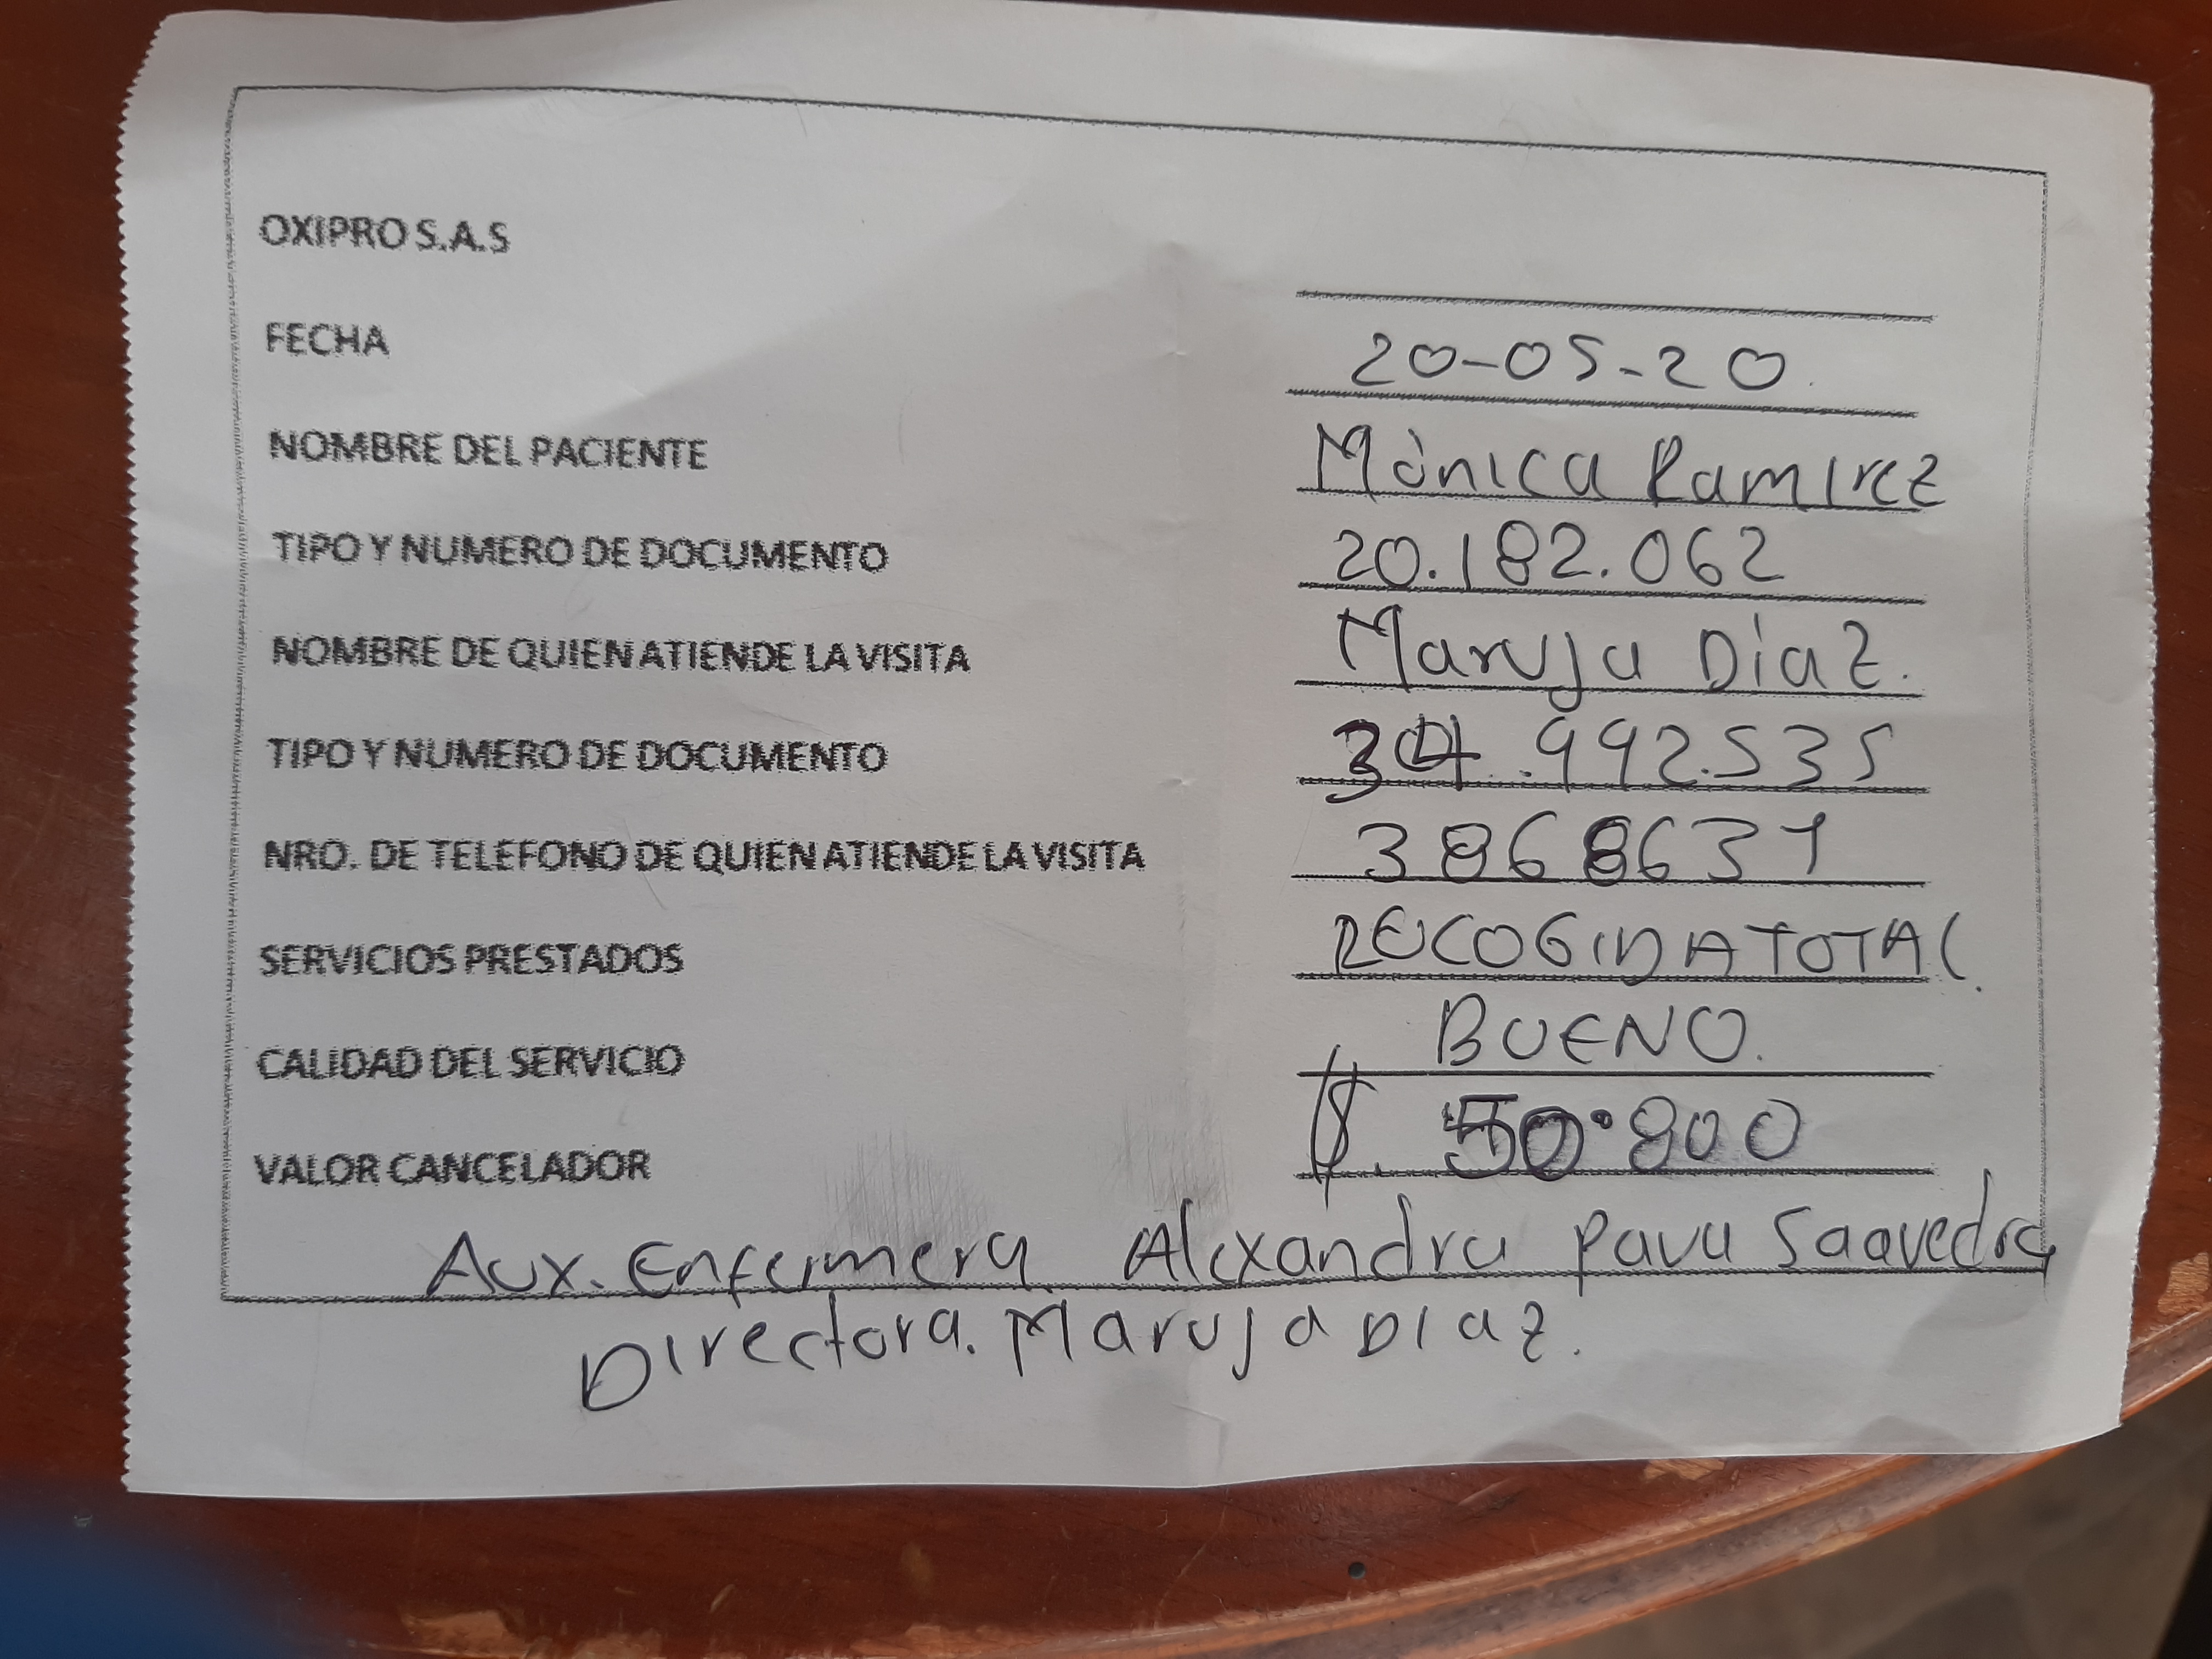 OXIPRO S.A.S
FECHA 20-05-20.
NOMBRE DEL PACIENTE Mónica Ramirez
TIPO Y NUMERO DE DOCUMENTO 20.182.062
NOMBRE DE QUIEN ATIENDE LA VISITA Maruja Díaz.
TIPO Y NUMERO DE DOCUMENTO 34.992.535
NRO. DE TELEFONO DE QUIEN ATIENDE LA VISITA 3868631
SERVICIOS PRESTADOS RECOGIDA TOTAL.
CALIDAD DEL SERVICIO BUENO.
VALOR CANCELADOR $. 50.800
Aux. Enfermera Alexandra Pava Saavedra
Directora. Maruja Diaz.